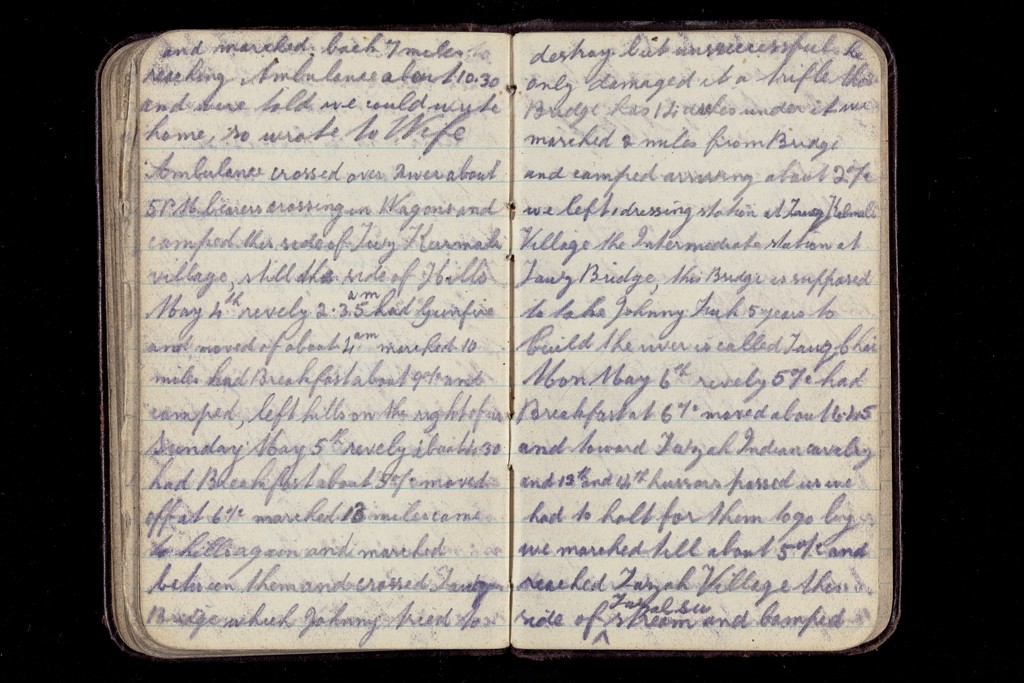 and marched back 7 miles to
reaching Ambulance about 10.30
and were told we could write
home, so wrote to Wife
Ambulance crossed over River about
5PM bearers crossing in Wagons and
camped this side of Tuzy Kurmah
village, still this side of Hills
May 4th revely 2.35 am had Gunfire
and moved of about 4 am marched 10
miles had Breakfast about 9 o/c and
camped, left hills on the right of us
Sunday May 5th revely about 4.30
had Breakfast about 5 o/c moved
off at 6 o/c marched 13 miles came
to hills again and marched
between them and crossed Tauq
Bridge which Johnny tried to
destroy but unsuccessful he
only damaged it a trifle this
Bridge has 14 arches under it we
marched 2 miles from Bridge
and camped arriving about 2 o/c
we left dressing station at Tauz
Village the Intermediate station at
Tauq Bridge, this Bridge is supposed
to take Johnny Turk 5 years to
build the river is called Tauq Chai
Mon May 6th revely 5 o/c had
Breakfast at 6 o/c moved about 16.45
and toward Tazah Indian cavalry
and 13th and 14th hussars passed us we
had to halt for them to go by
we marched till about 5 o/c and
reached Tazah Village this
side of Tazah su stream and camped